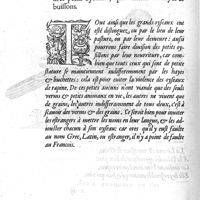 buissons.
TOut ainsi que les grands oyseaux ont
esté distinguez, ou par le lieu de leur
pasture, ou par leur demeure: aussi
pourrons faire division des petits oy-
sillons par leur nourriture, car com-
bien que touts ceux qui sont de petite
stature se maintiennent indifferemment par les hayes
& buchettes: cela est pour eviter la violence des oyseaux
de rapine. Ce neantmoins les uns ne vivent que des seuls
vermis & petits animaux en vie, les autres ne vivent que
de grains, les autres indifferemment de tous deux, c'est à
sçavoir des vermis & des grains. Ce seroit bien pour inviter
les estrangers à mettre les noms en leur langue, & les ad-
iouster chacun à son oyseau: car ores qu'il y eust faulte
un nom Grec, Latin, ou estranger, il n'a point de faulte
au Francois.